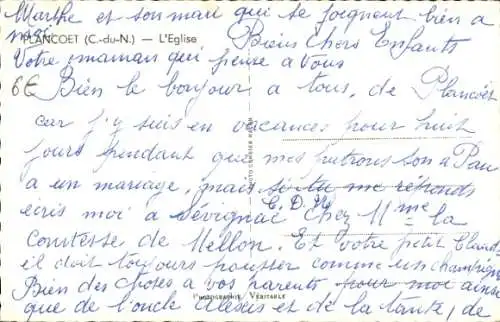 Marthe et son mari qui se joignent bien a
moi
PLANCOET (C.-du-N.) — L'Eglise
Biens Chers Enfants
Votre maman qui pense a Vous
6€ Bien le bonjour a tous, de Plancoët
car j'y suis en vacances pour huit
jours pendant que mes patrons son a Pau
a un mariage, mais si tu me réponds
écris moi a Sévignac C. D. N. Chez Mme la
Comtesse de Mellon. Et votre petit Claude
il doit toujours pousser comme un champignon
Bien des choses a vos parents pour moi ainsi
que de l'oncle Alexis et de la tante, de
PHOTOGRAPHIE VÉRITABLE